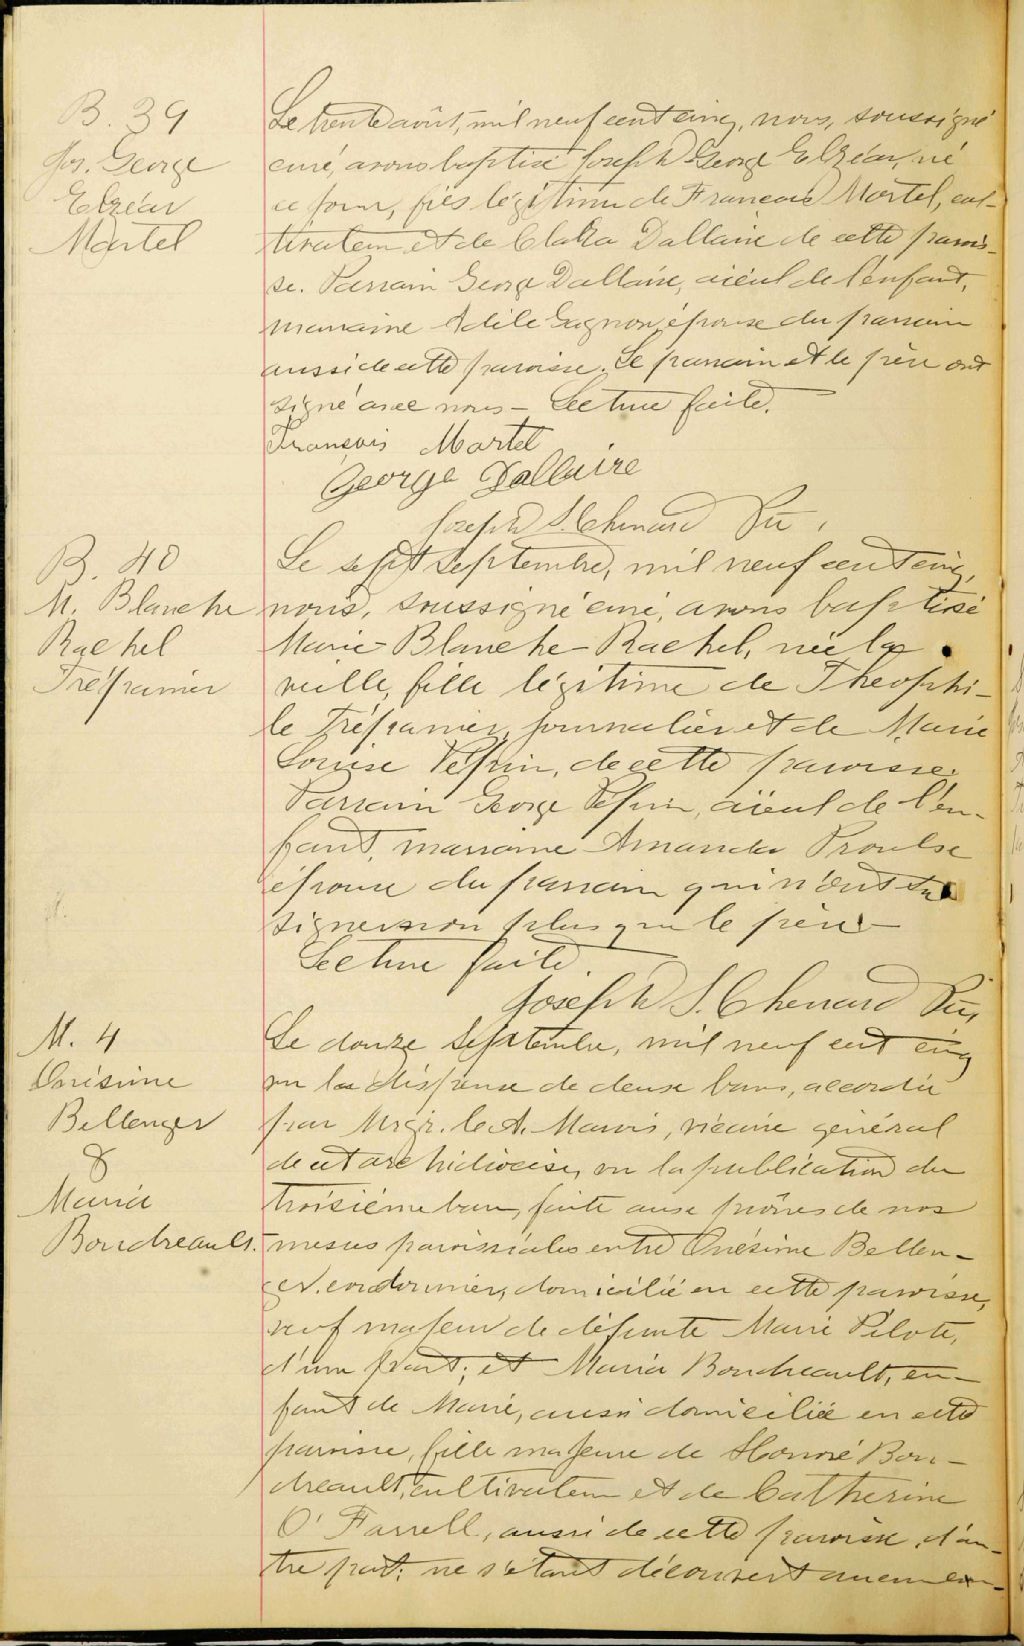 B. 39
Jos. George
Elzéar
Martel
Le trente août, mil neuf cent cinq, nous, soussigné
curé, avons baptisé Joseph George Elzéar, né
ce jour, fils légitime de François Martel, cul-
tivateur et de Clara Dallaire de cette parois-
se. Parrain George Dallaire, aïeul de l'enfant,
marraine Adèle Gagnon, épouse du parrain
aussi de cette paroisse. Le parrain et le père ont
signé avec nous - Lecture faite.
François Martel
George Dallaire
Joseph S. Chenard Ptr.
B. 40
M. Blanche
Rachel
Trépanier
Le sept septembre, mil neuf cent cinq,
nous, soussigné curé, avons baptisé
Marie-Blanche-Rachel, née la
veille, fille légitime de Théophi-
le Trépanier, journalier et de Marie
Louise Pépin, de cette paroisse.
Parrain George Pépin, aïeul de l'en-
fant, marraine Amanda Proulx
épouse du parrain qui n'ont su
signer non plus que le père -
Lecture faite.
Joseph S. Chenard Ptr,
M. 4
Onésime
Bellenger
&
Maria
Boudreault.
Le douze septembre, mil neuf cent cinq
vu la dispense de deux bans, accordée
par Mrgr. le A. Marois, vicaire général
de cet archidiocèse, vu la publication du
troisième ban, faite aux prônes de nos
messes paroissiales entre Onésime Bellen-
ger, cordonnier, domicilié en cette paroisse,
veuf majeur de défunte Marie Pilote,
d'une part; et Maria Boudreault, en-
fant de Marie, aussi domiciliée en cette
paroisse, fille majeure de Honoré Bou-
dreault, cultivateur et de Catherine
O'Farrell, aussi de cette paroisse, d'au-
tre part; ne s'étant découvert aucun em-